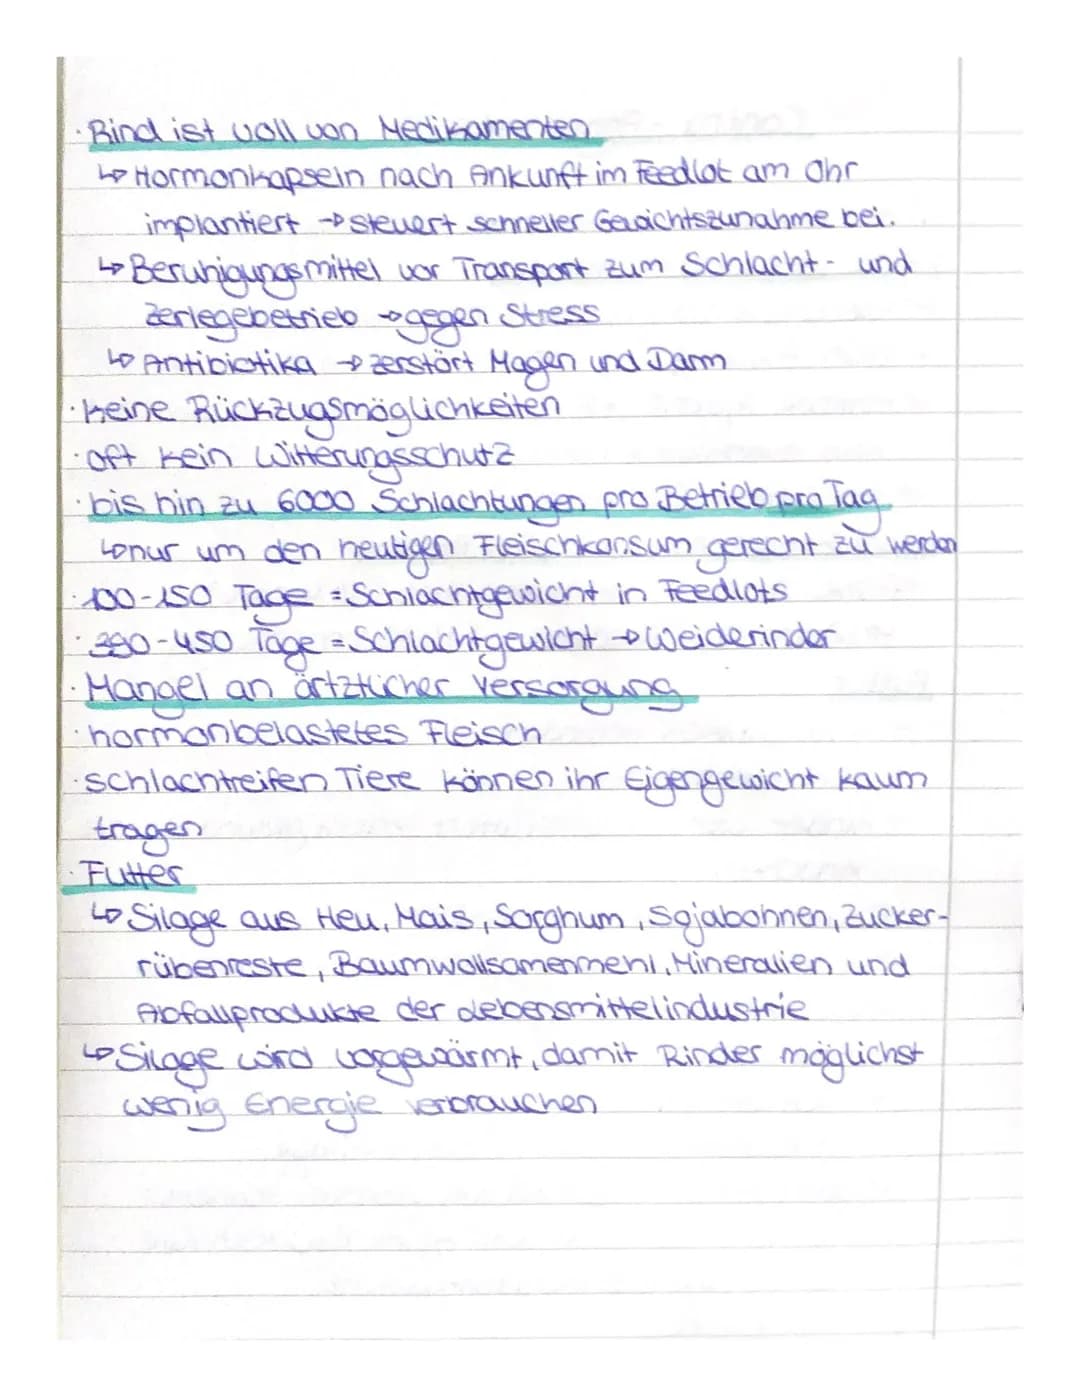 · Rind ist voll von Medikamenten
↳ Hormonkapseln nach Ankunft im Feedlot am Ohr
implantiert → steuert schneller Gewichtszunahme bei.
↳ Beruhigungsmittel vor Transport zum Schlacht- und
Zerlegebetrieb → gegen Stress
↳ Antibiotika → zerstört Magen und Darm
· keine Rückzugsmöglichkeiten
· oft kein Witterungsschutz
· bis hin zu 6000 Schlachtungen pro Betrieb pro Tag
↳ nur um den heutigen Fleischkonsum gerecht zu werden
· 100-150 Tage = Schlachtgewicht in Feedlots
· 390-450 Tage = Schlachtgewicht → Weiderinder
· Mangel an ärtztlicher Versorgung
· hormonbelastetes Fleisch
· schlachtreifen Tiere können ihr Eigengewicht kaum
tragen
· Futter
↳ Silage aus Heu, Mais, Sorghum, Sojabohnen, Zucker-
rübenreste, Baumwollsamenmehl, Mineralien und
Abfallprodukte der Lebensmittelindustrie
↳ Silage wird vorgewärmt, damit Rinder möglichst
wenig Energie verbrauchen